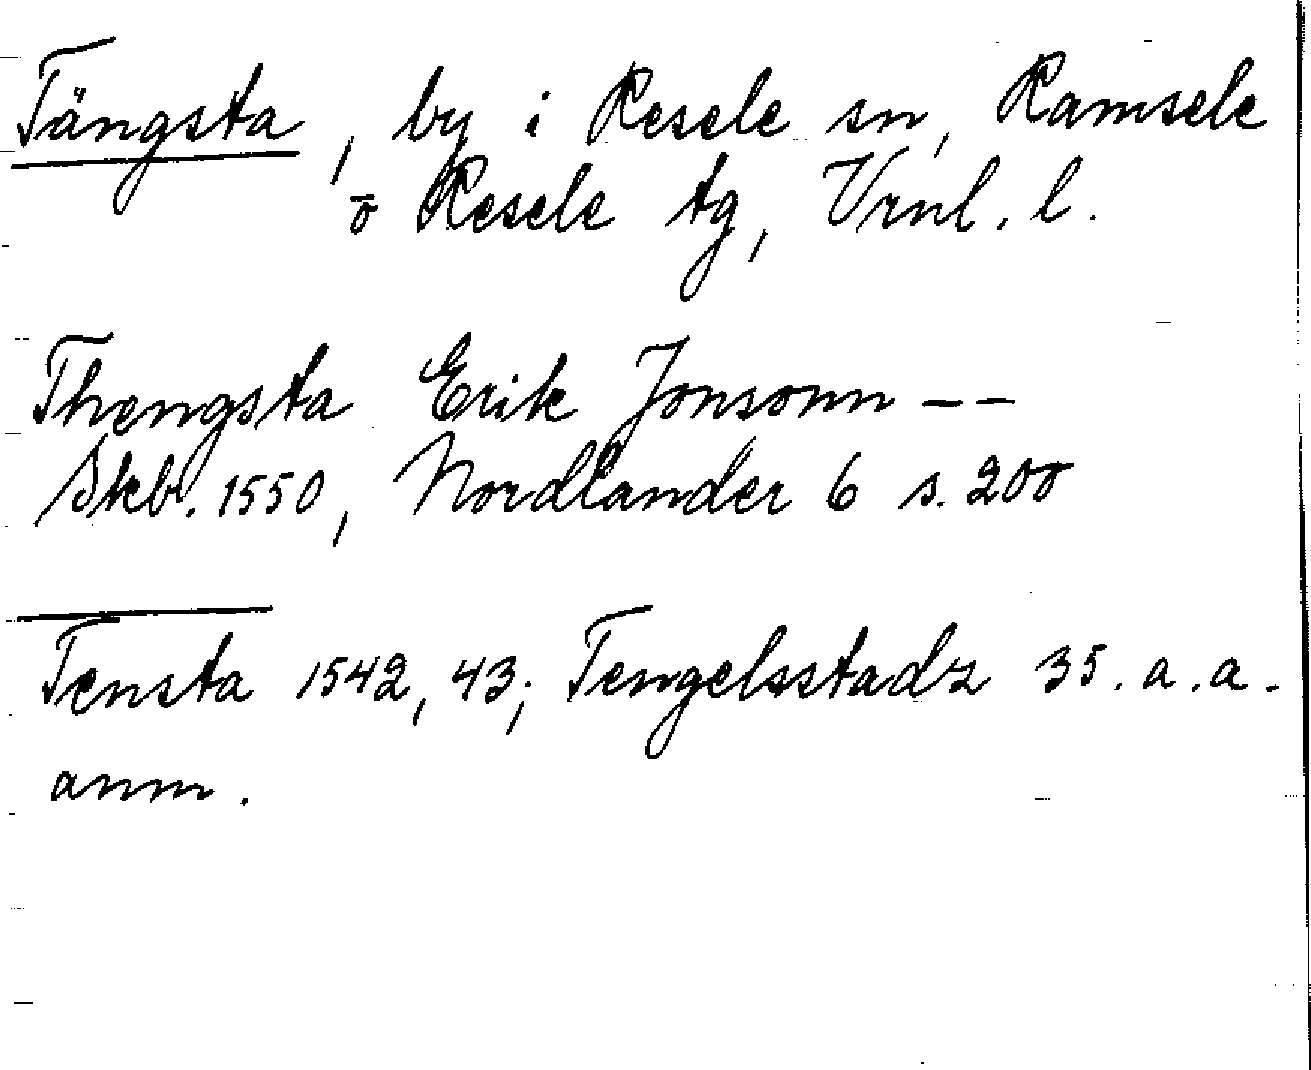 Tängsta, by i Resele sn, Ramsele
o Resele tg, Vrnl. l.
Thengsta Erik Jonsonn --
Skb. 1550, Nordlander 6 s. 200
Tensta 1542, 43; Tengelsstadz 35. a. a.
anm.